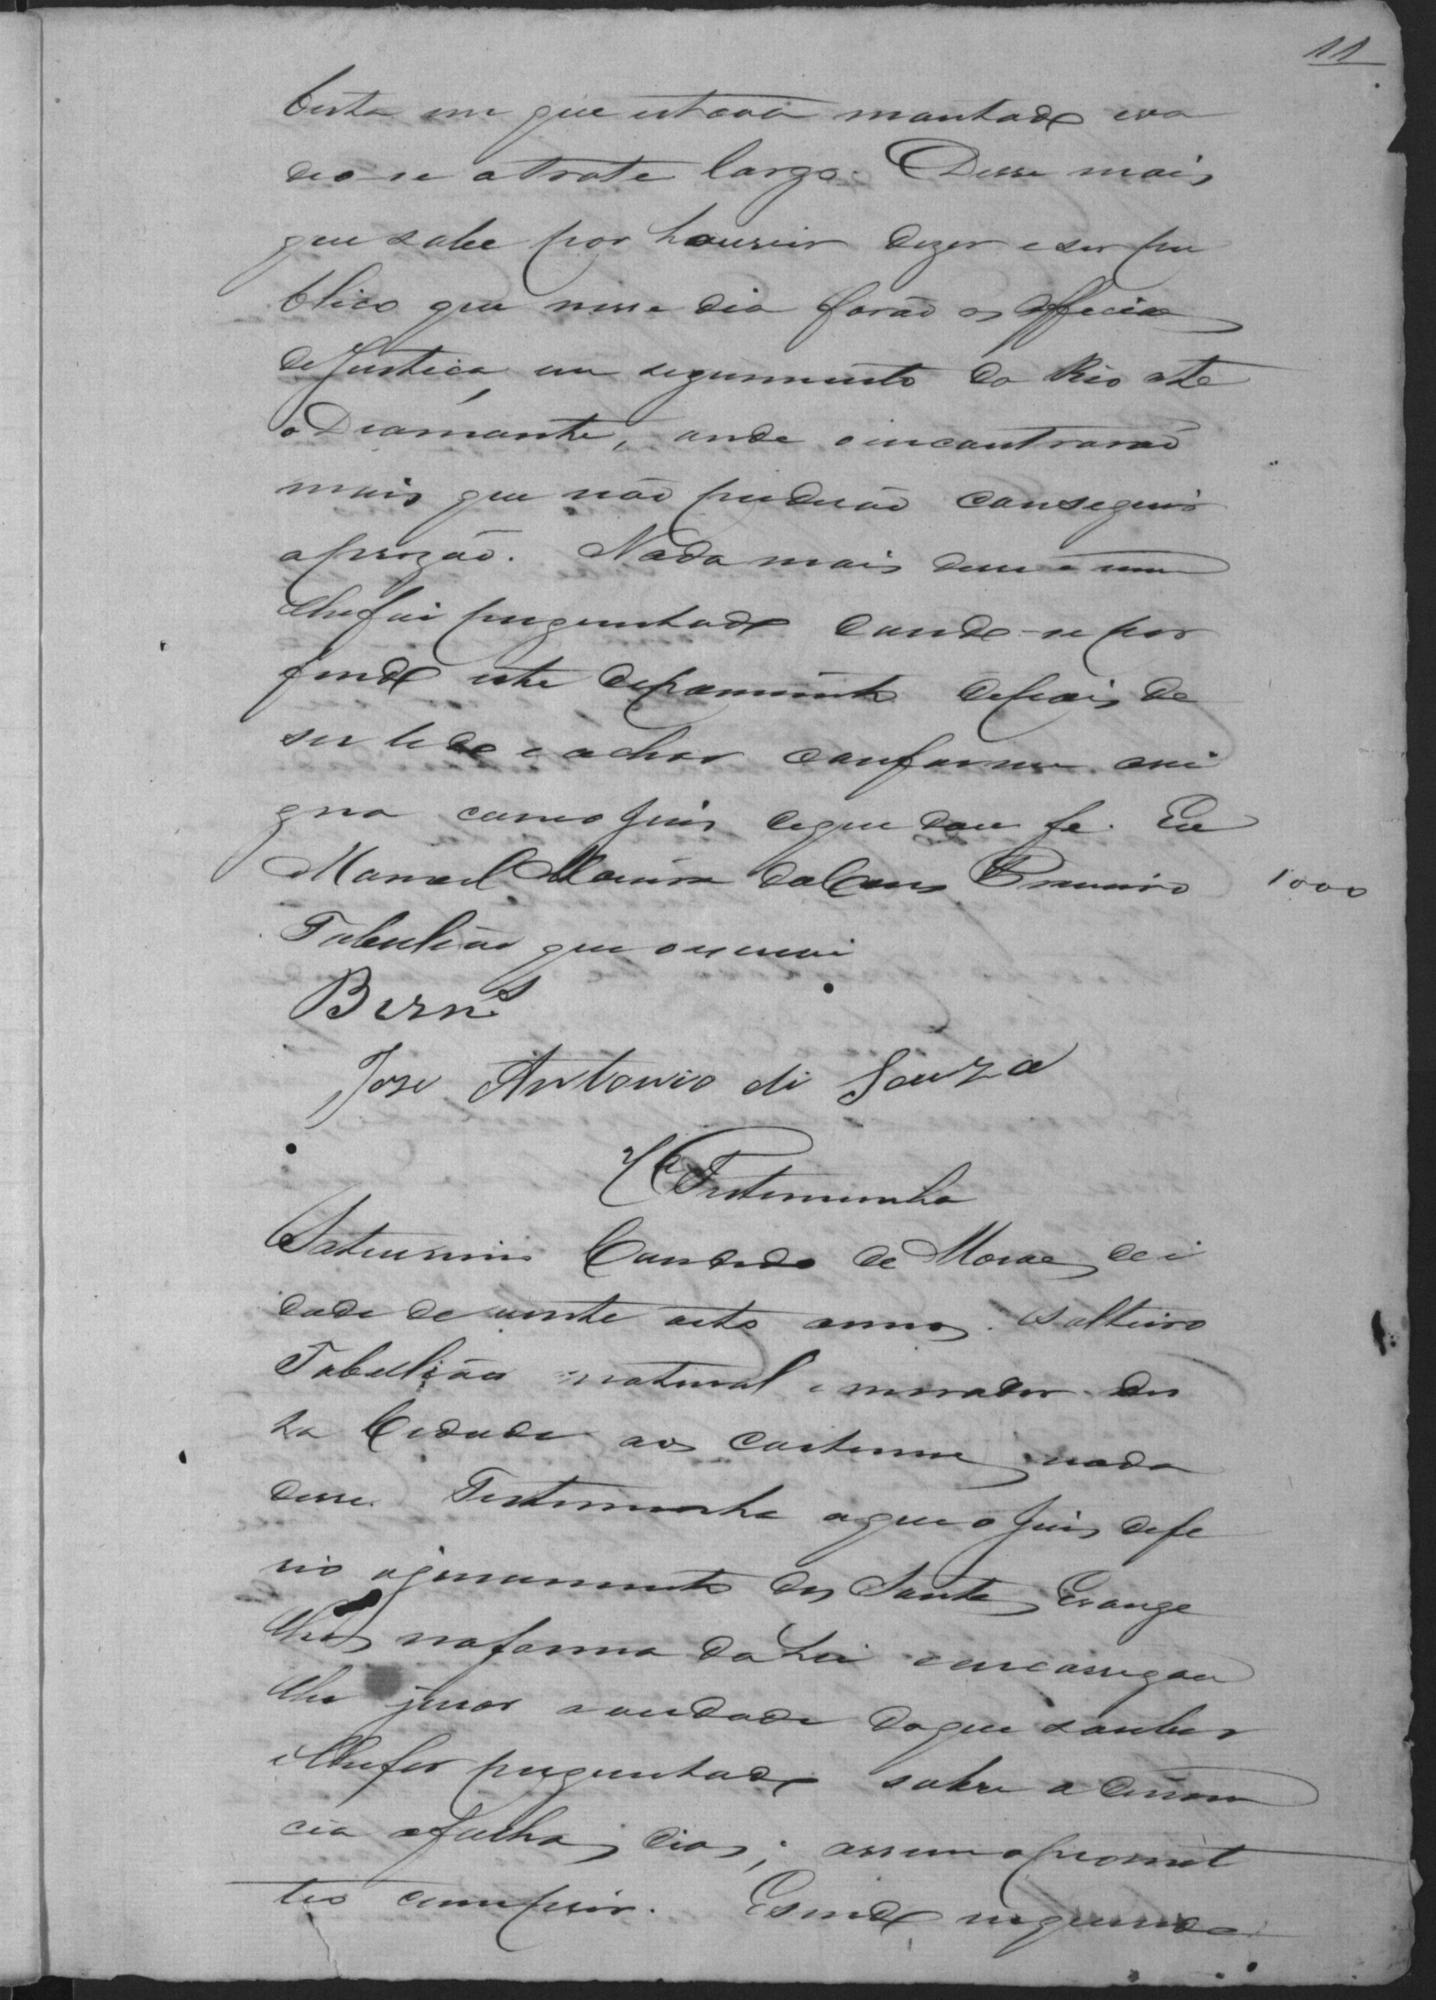 11
besta em que estava mantado eva
deo-se a trote largo. Disse mais
que sabe por houvir dizer e ser pu
blico que nesse dia forão os officiaes
de Justiça em seguimento do Rio até
o Diamante, onde o incontrarão
mais que não puderão conseguir
a prizão. Nada mais disse e nem
lhe foi preguntado dando-se por
findo este depoimento depois de
ser lido e achar conforme assi
gna com o Juis do que dou fé. Eu
Manoel Primeiro
1000
Tabelião que o escrevi
Bern.s
Jose Antonio di Souza
2ª Testemunha
Saturnino Candido de Moraes de i
dade de vinte oito annos, solteiro
Tabellião natural e morador des
ta Cidade aos custumes nada
disse. Testemunha a que o Juis defe
rio o juramento dos Santos Evange
lhos na forma da Lei encarregou
lhe jurar a verdade do que souber
e lhe for preguntado sobre a denun
cia a folhas dias; assim o promet
teo cumprir. E sendo inquirida